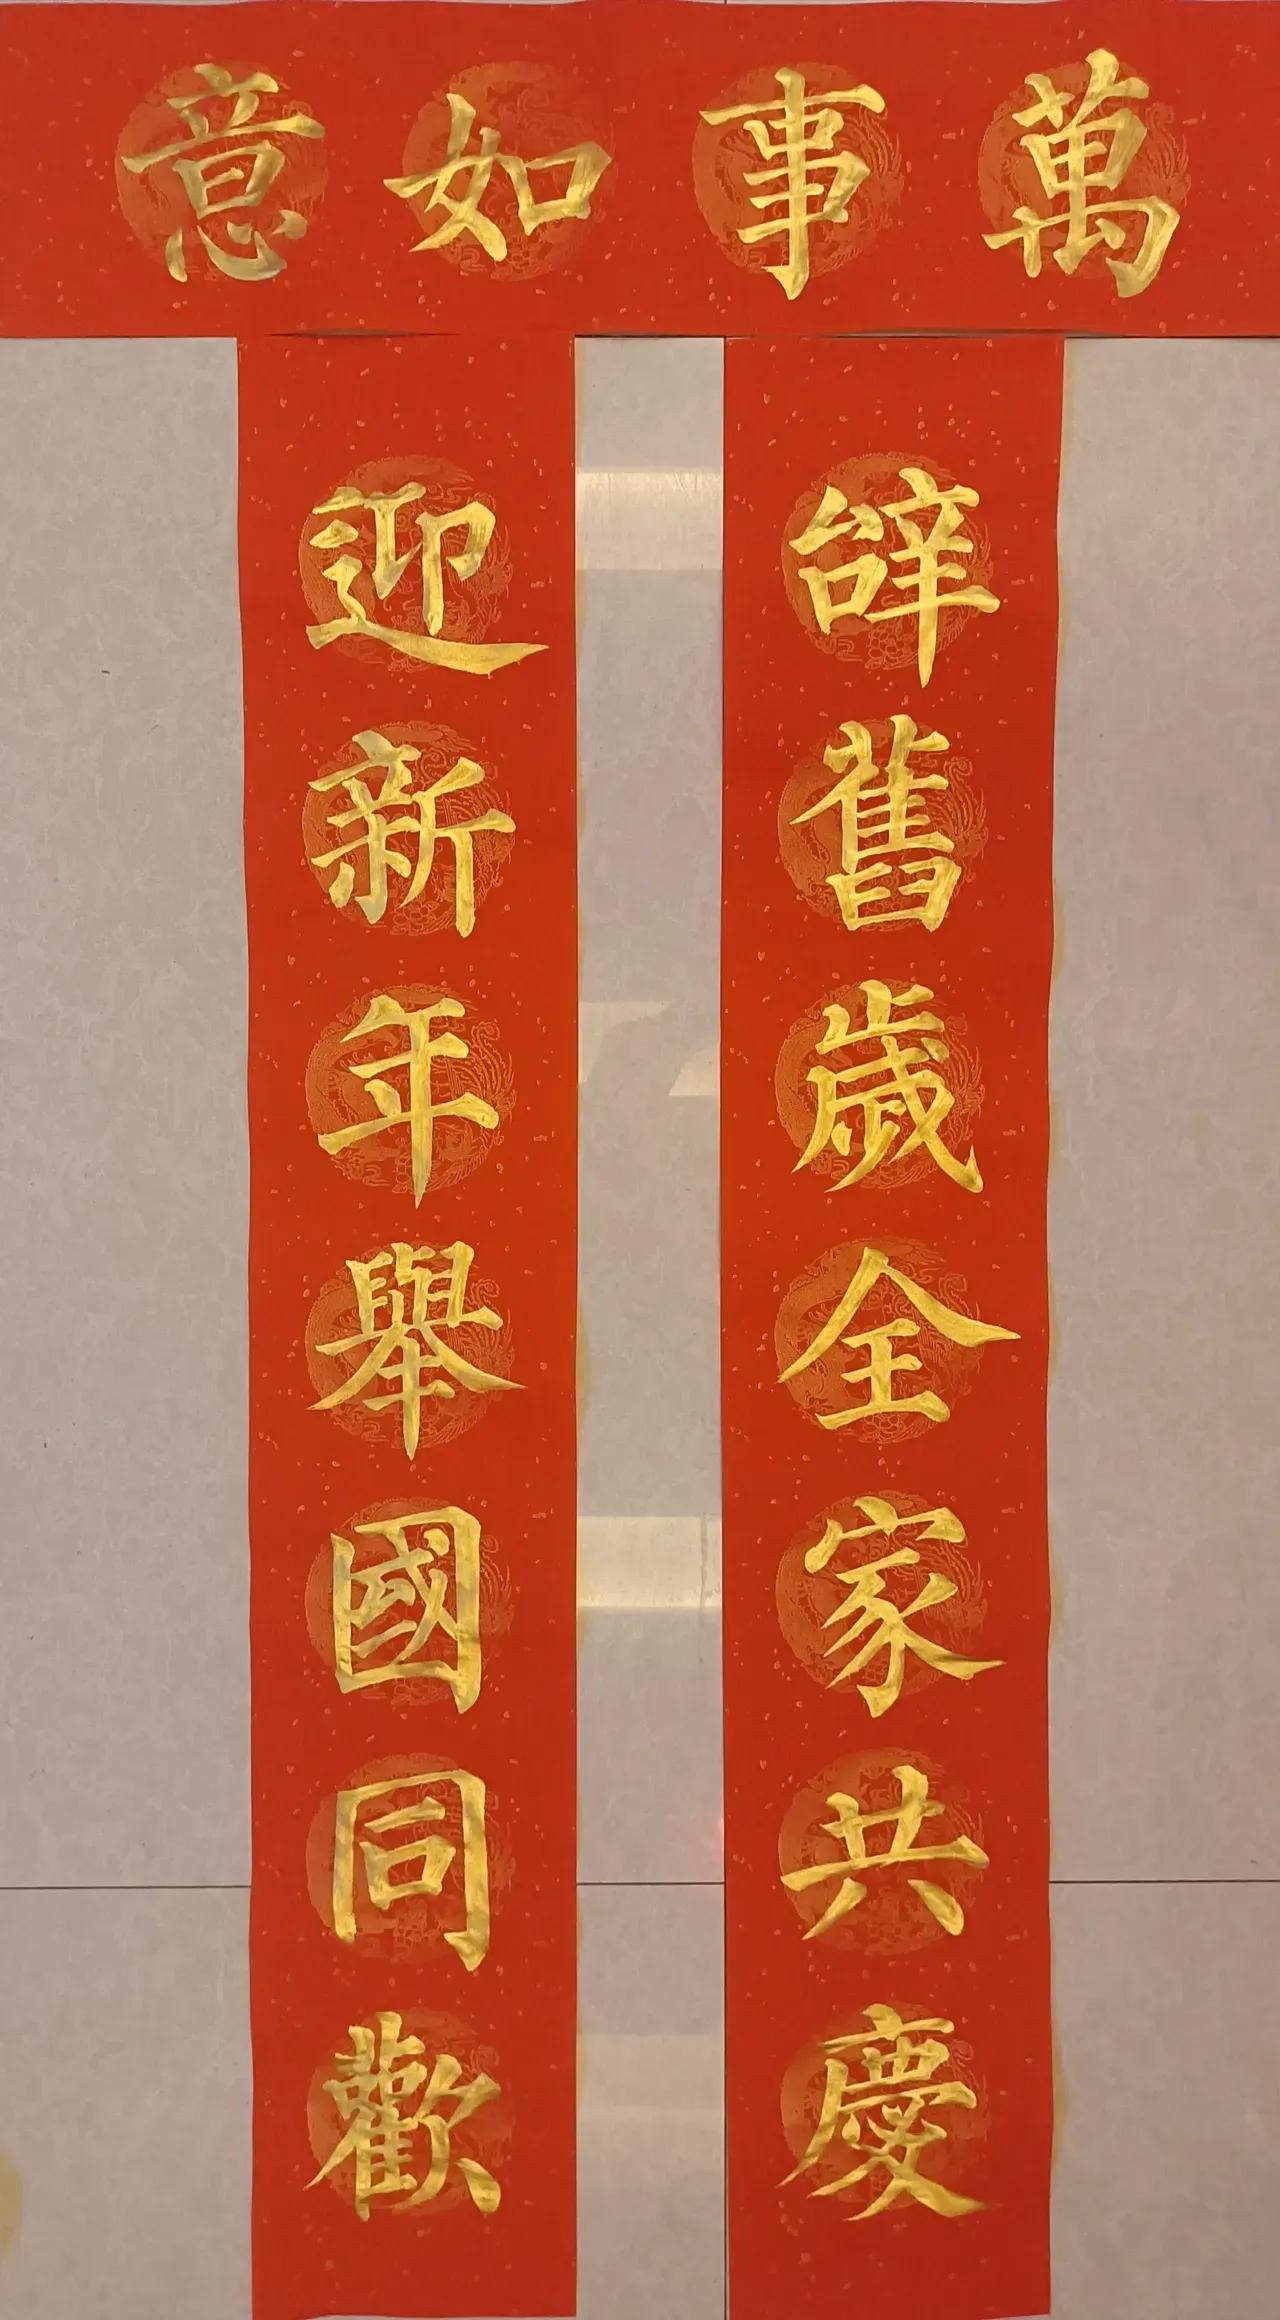 萬事如意
辤舊歲全家共慶
迎新年舉國同歡